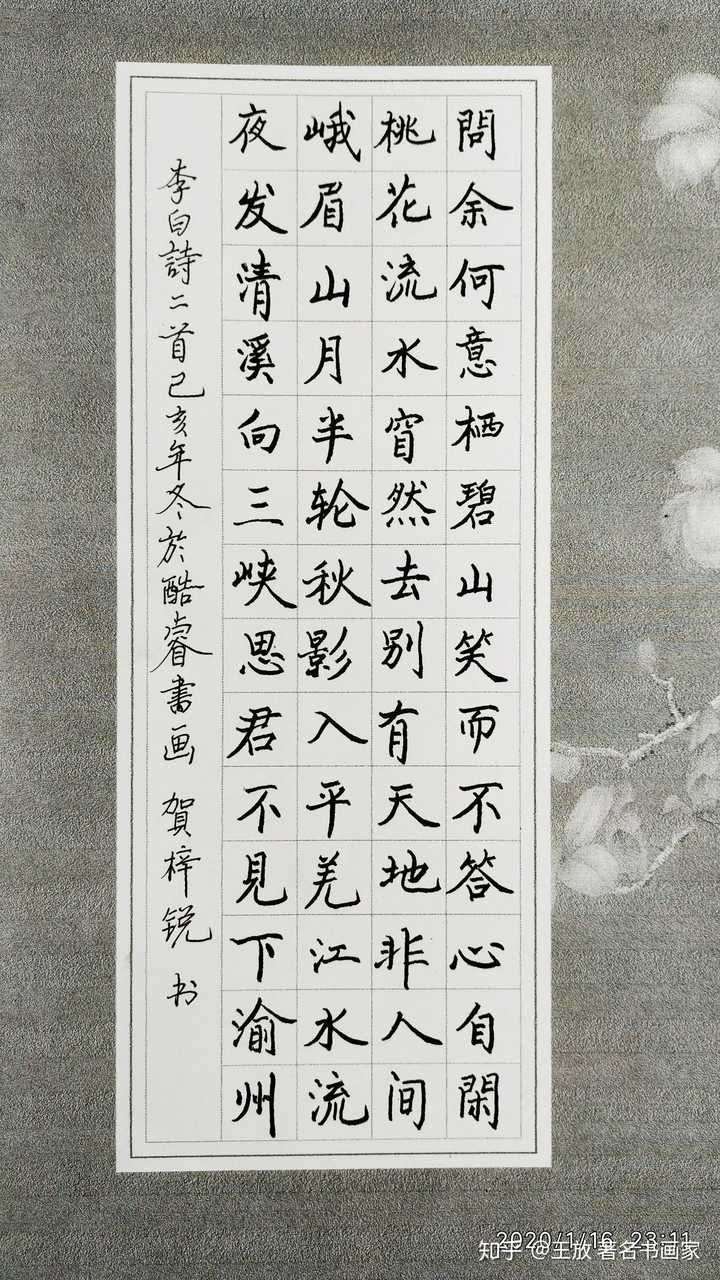 問余何意栖碧山笑而不答心自閑
桃花流水窅然去别有天地非人间
峨眉山月半轮秋影入平羌江水流
夜发清溪向三峡思君不見下渝州
李白詩二首己亥年冬於酷睿書画 賀梓锐 书
2020/1/16 23:11
知乎 @王放 著名书画家